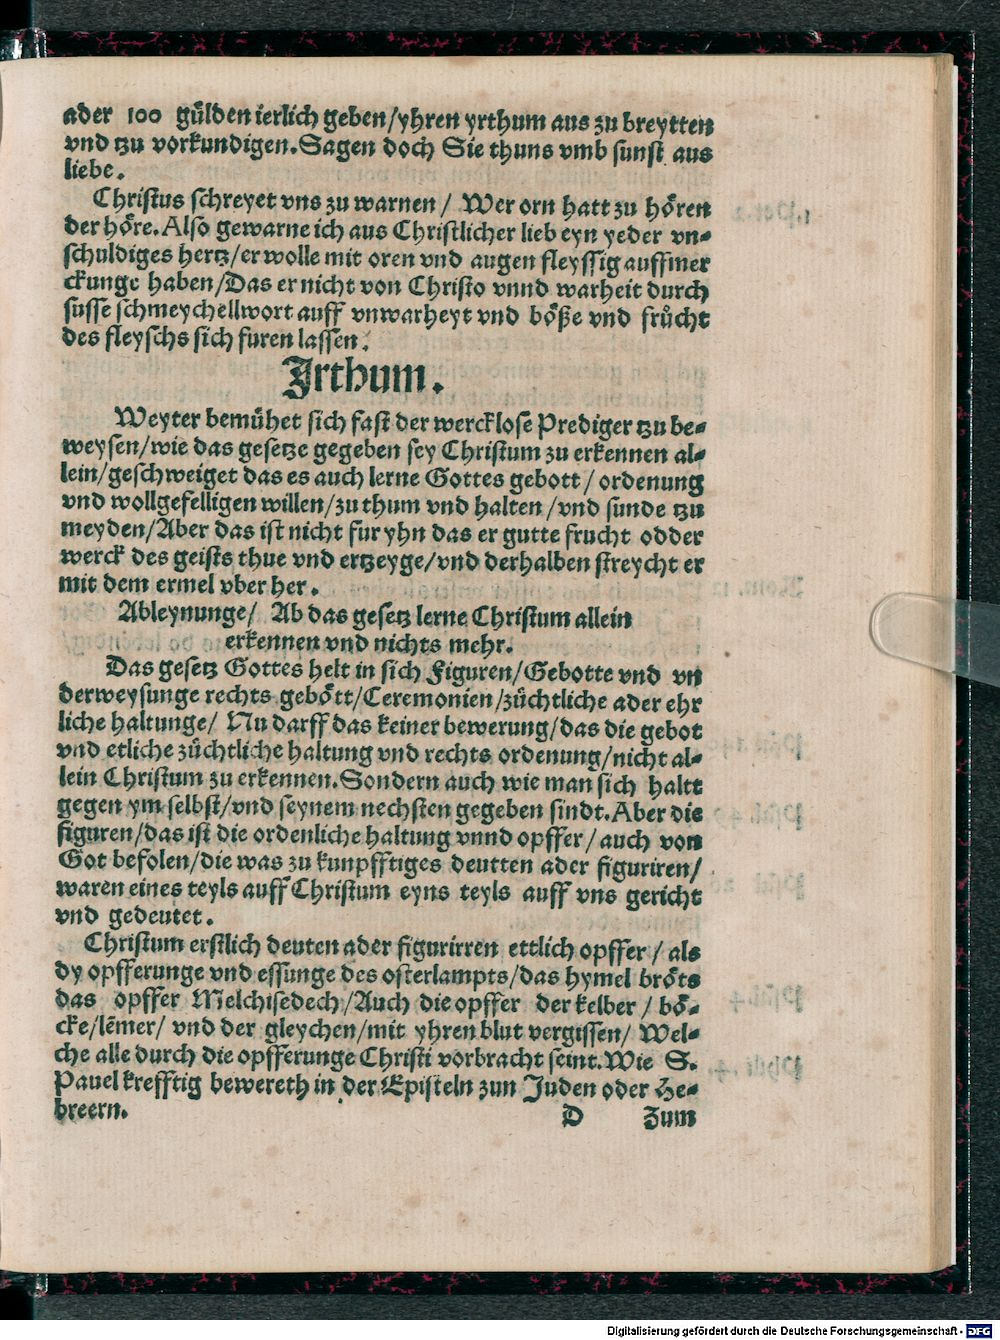 ader 100 gůlden ierlich geben/yhren yrthum aus zu breytten
vnd tzu vorkundigen.Sagen doch Sie thuns vmb sunst aus
liebe.
Christus schreyet vns zu warnen/ Wer orn hatt zu hőren
der hőre.Also gewarne ich aus Christlicher lieb eyn yeder vn-
schuldiges hertz/er wolle mit oren vnd augen fleyssig auffmer
ckunge haben/Das er nicht von Christo vnnd warheit durch
susse schmeychellwort auff vnwarheyt vnd bőße vnd frůcht
des fleyschs sich furen lassen.
Jrthum.
Weyter bemůhet sich fast der wercklose Prediger tzu be-
weysen/wie das gesetze gegeben sey Christum zu erkennen al-
lein/geschweiget das es auch lerne Gottes gebott/ ordenung
vnd wollgefelligen willen/zu thum vnd halten/vnd sunde tzu
meyden/Aber das ist nicht fur yhn das er gutte frucht odder
werck des geists thue vnd ertzeyge/vnd derhalben streycht er
mit dem ermel vber her.
Ableynunge/ Ab das gesetz lerne Christum allein
erkennen vnd nichts mehr.
Das gesetz Gottes helt in sich Figuren/Gebotte vnd vn
derweysunge rechts gebőtt/Ceremonien/zůchtliche ader ehr
liche haltunge/ Nu darff das keiner bewerung/das die gebot
vnd etliche zůchtliche haltung vnd rechts ordenung/nicht al-
lein Christum zu erkennen.Sondern auch wie man sich haltt
gegen ym selbst/vnd seynem nechsten gegeben sindt.Aber die
figuren/das ist die ordenliche haltung vnnd opffer/ auch von
Got befolen/die was zu kunpfftiges deutten ader figuriren/
waren eines teyls auff Christum eyns teyls auff vns gericht
vnd gedeutet.
Christum erstlich deuten ader figurirren ettlich opffer/ als
dy opfferunge vnd essunge des osterlampts/das hymel brőts
das opffer Melchisedech/Auch die opffer der kelber/ bő-
cke/lēmer/ vnd der gleychen/mit yhren blut vergissen/ Wel-
che alle durch die opfferunge Christi vorbracht seint.Wie S.
Pauel krefftig bewereth in der Episteln zun Juden oder He-
breern.
D Zum
Digitalisierung gefördert durch die Deutsche Forschungsgemeinschaft - DFG